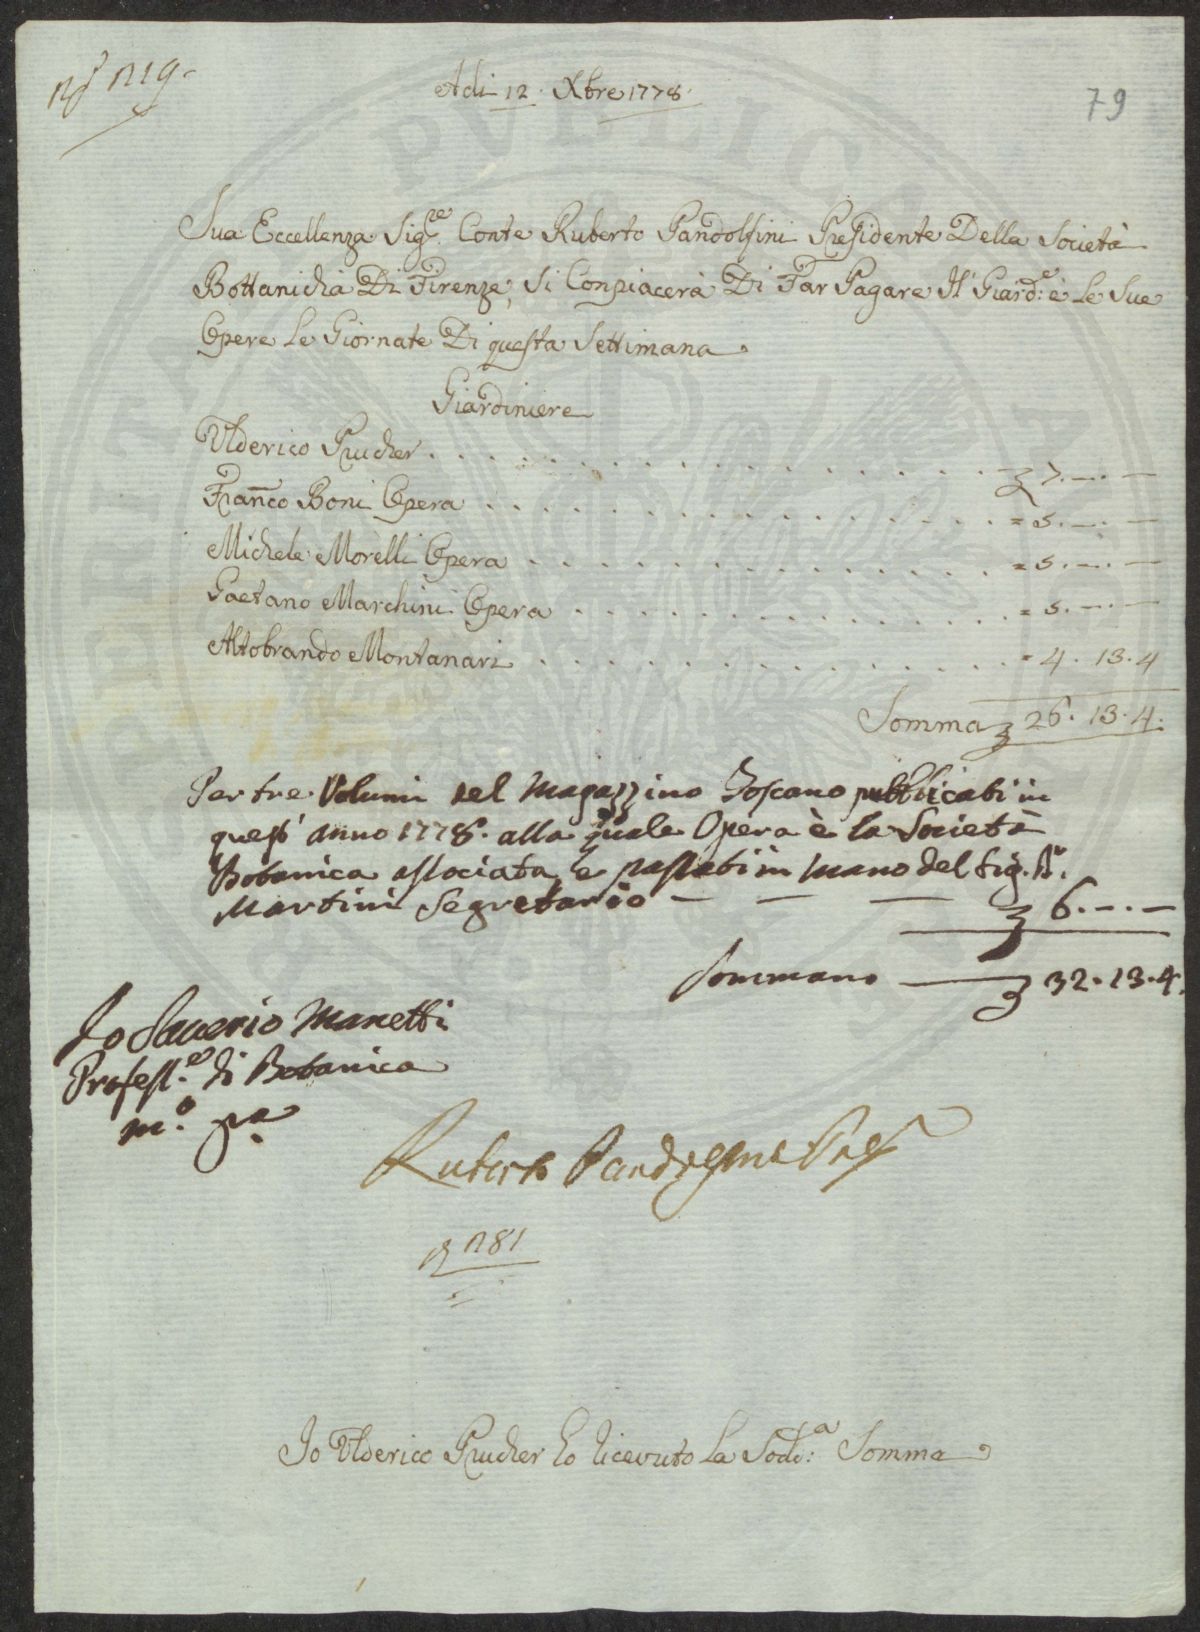 N° 119.
Adi 12. Xbre 1778.
79
Sua Eccellenza Sig.re Conte Ruberto Pandolfini Presidente Della Società
Bottanicha Di Firenze, Si Conpiacerà Di Far Pagare Il Giard:e e Le Sue
Opere Le Giornate Di questa Settimana
Giardiniere
Ulderico Prucher . . . £ 7. —. —
Fran̄co Boni Opera . . . = 5. —. —
Michele Morelli Opera . . . = 5. —. —
Gaetano Marchini Opera . . . = 5. —. —
Altobrando Montanari . . . = 4. 13. 4
Somma £ 26. 13. 4.
Per tre Volumi del Magazzino Toscano pubblicati in
quest' anno 1778. alla quale Opera è la Società
Botanica associata, e passati in mano del Sig. Dr.
Martini Segretario — — — £ 6. —. —
Sommano — £ 32. 13. 4.
Io Saverio Manetti
Profess.e di Botanica
m.o pa.
Ruberto Pandolfini Pres
N 181
Io Ulderico Prucher ho ricevuto La Sodd:a Somma
PVBLICA